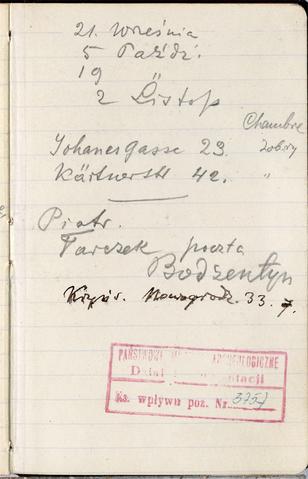 21. Września
5 Paźdź.
19 "
2 Listop
Chambre
Johannesgasse 23. dobry
Kärtnerstr 42. "
Piotr.
Tarczek poczta
Bodzentyn
Nowogrodz. 33. 7.
PAŃSTWOWE ARCHEOLOGICZNE
Dział
Ks. wpływu poz. Nr 375